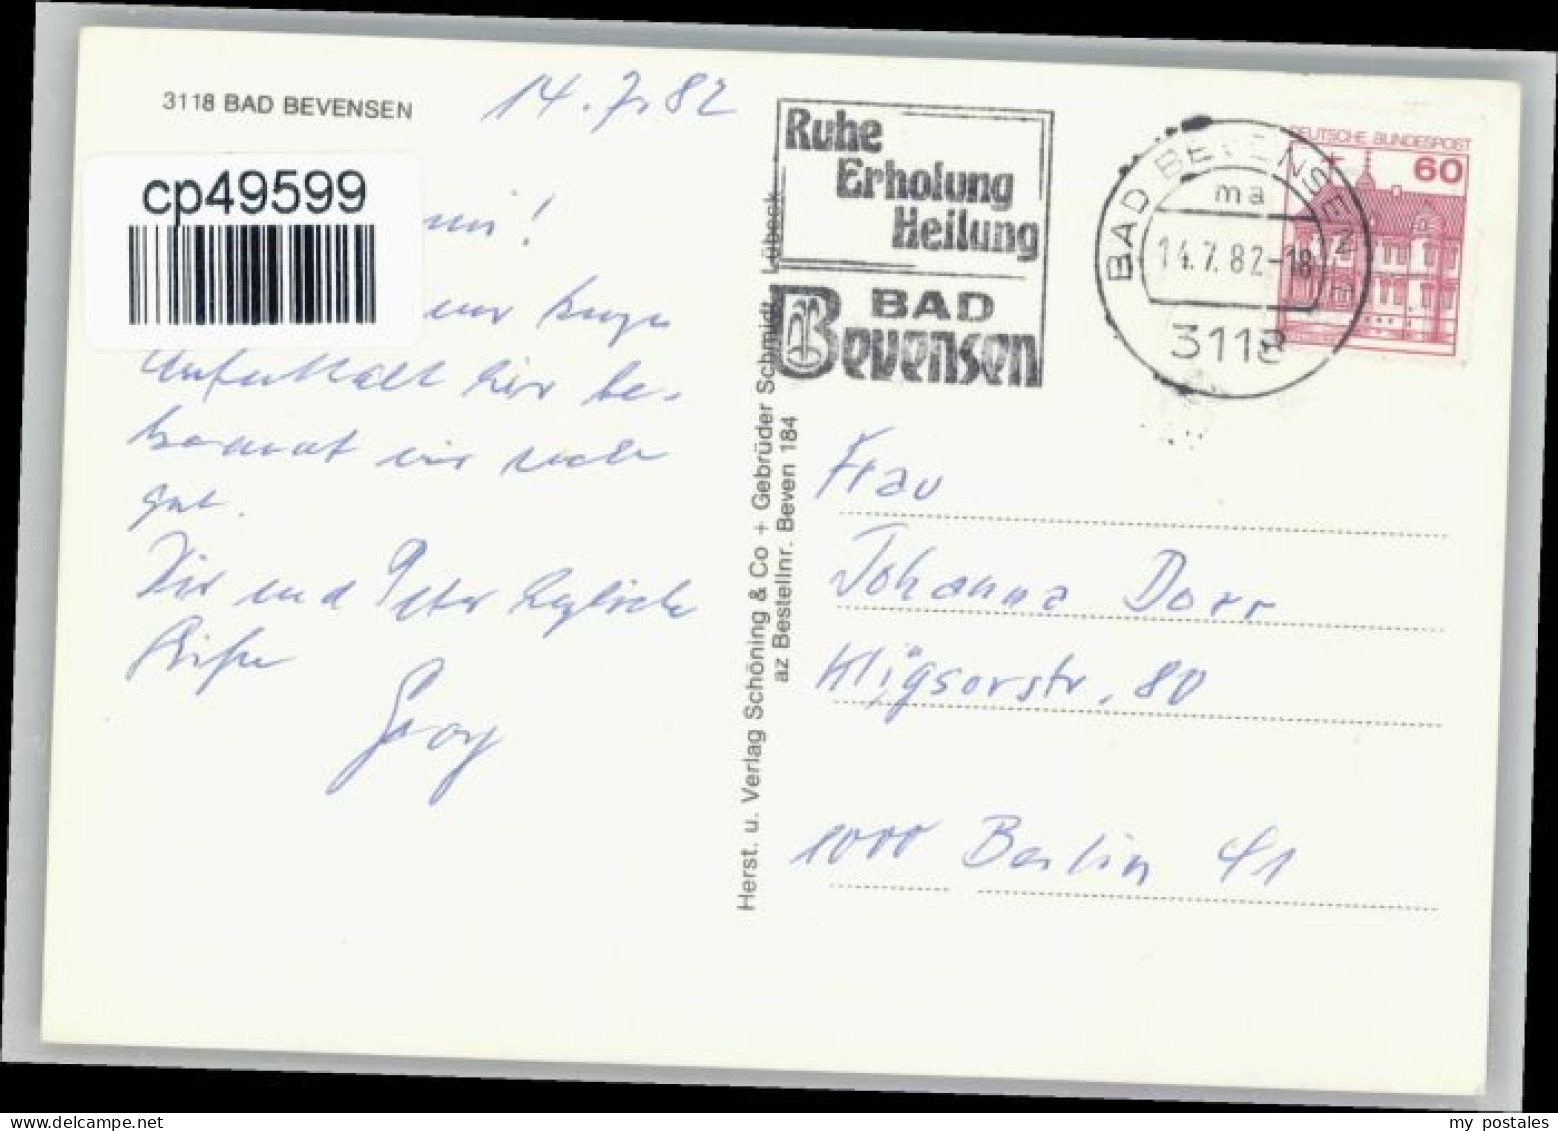 3118 BAD BEVENSEN
14.7.82
cp49599
nni!
nur kurze
Aufenthalt hier be-
kommt mir recht
gut.
Dir und Peter herzliche
Grüße
Herst. u. Verlag Schöning & Co + Gebrüder Schmidt, Lübeck
az Bestellnr. Beven 184
Ruhe
Erholung
Heilung
BAD
Bevensen
BAD BEVENSEN 1
ma
14.7.82-18
3118
DEUTSCHE BUNDESPOST
60
Frau
Johanna Dorr
Kligsorstr. 80
1000 Berlin 41
my postales